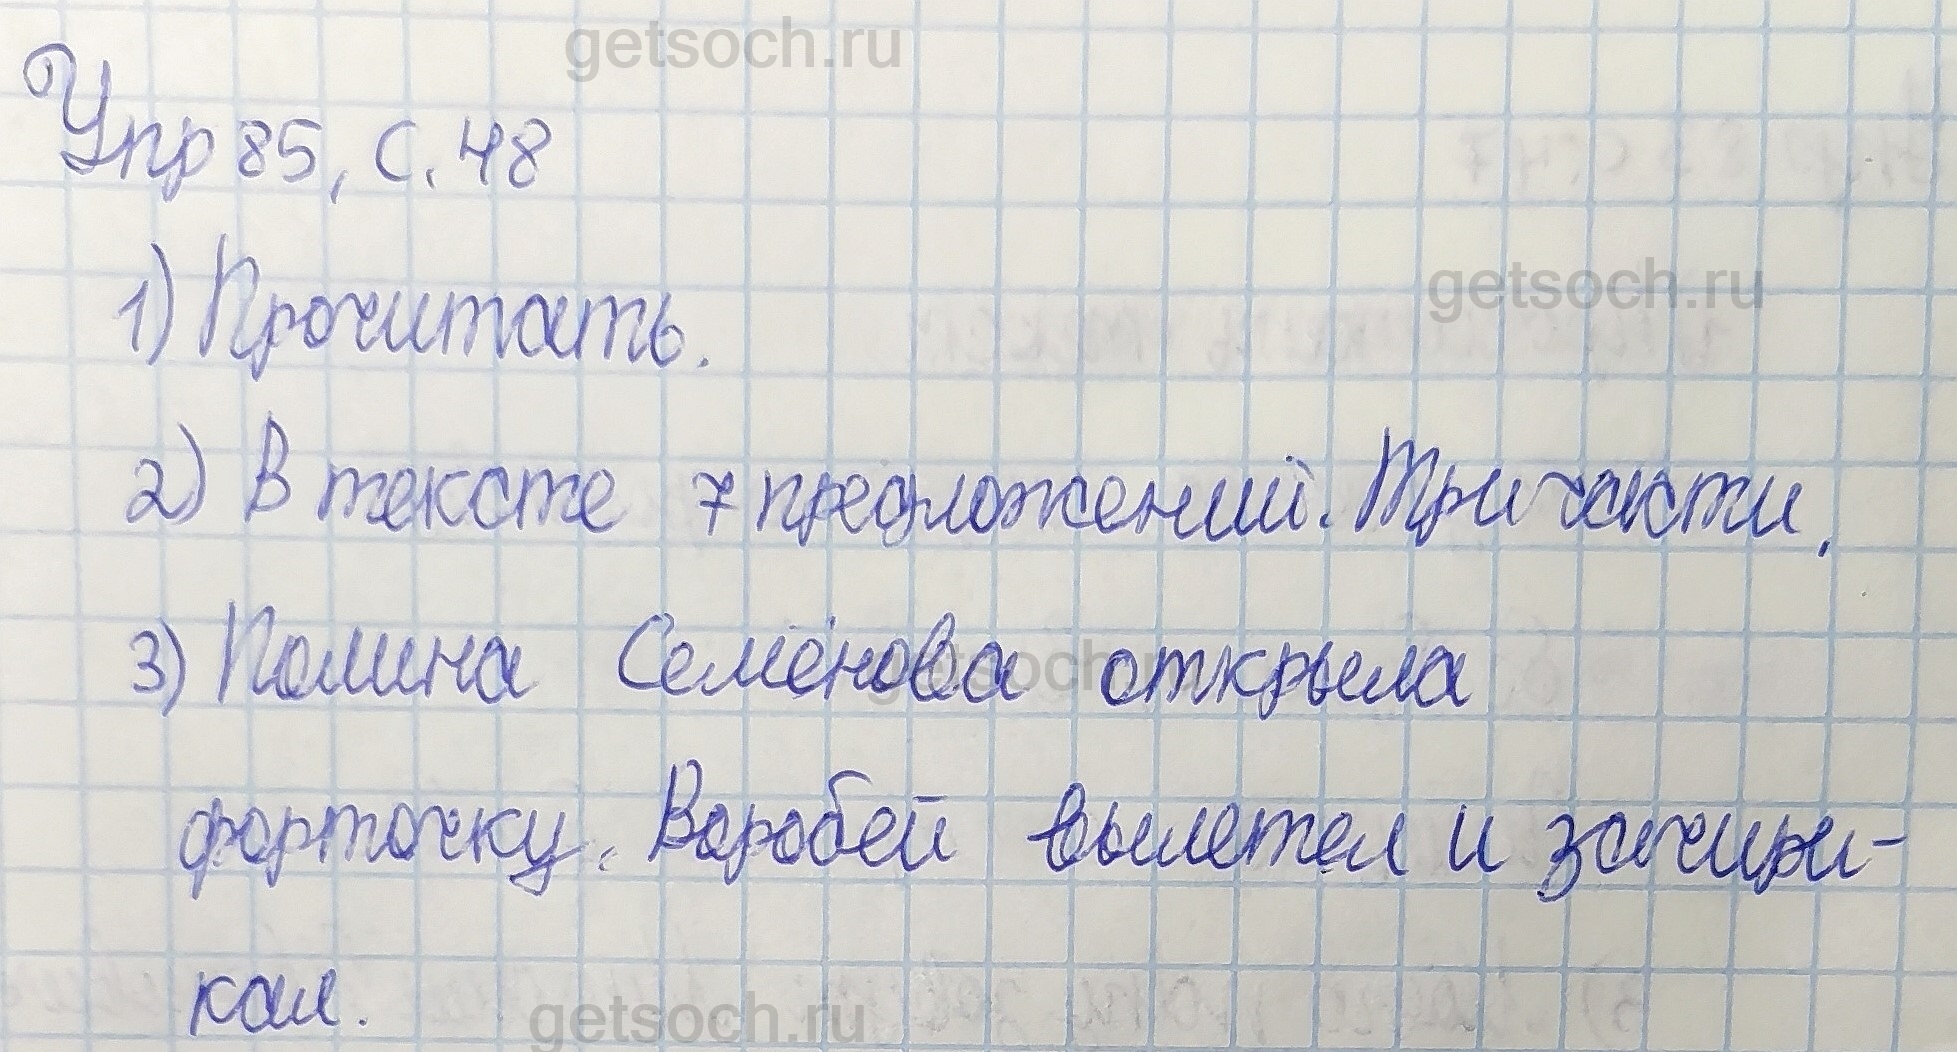 getsoch.ru
Упр 85, с. 48
1) Прочитать.
getsoch.ru
2) В тексте 7 предложений. Три части.
3) Полина Семёнова открыла
getsoch.ru
форточку. Воробей вылетел и зачири-
кал.
getsoch.ru